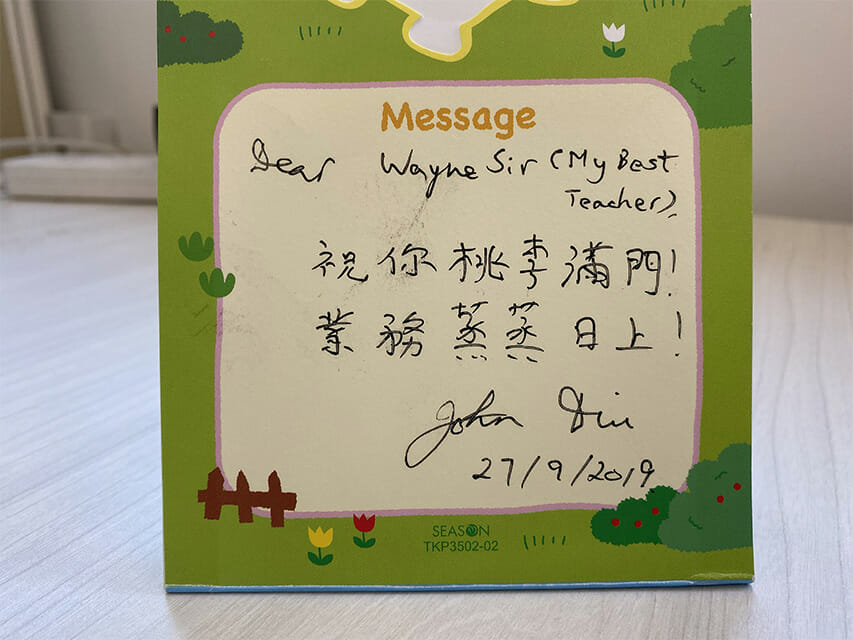 Message
Dear Wayne Sir (My Best
Teacher),
祝你桃李滿門!
業務蒸蒸日上!
John
27/9/2019
SEASON
TKP3502-02